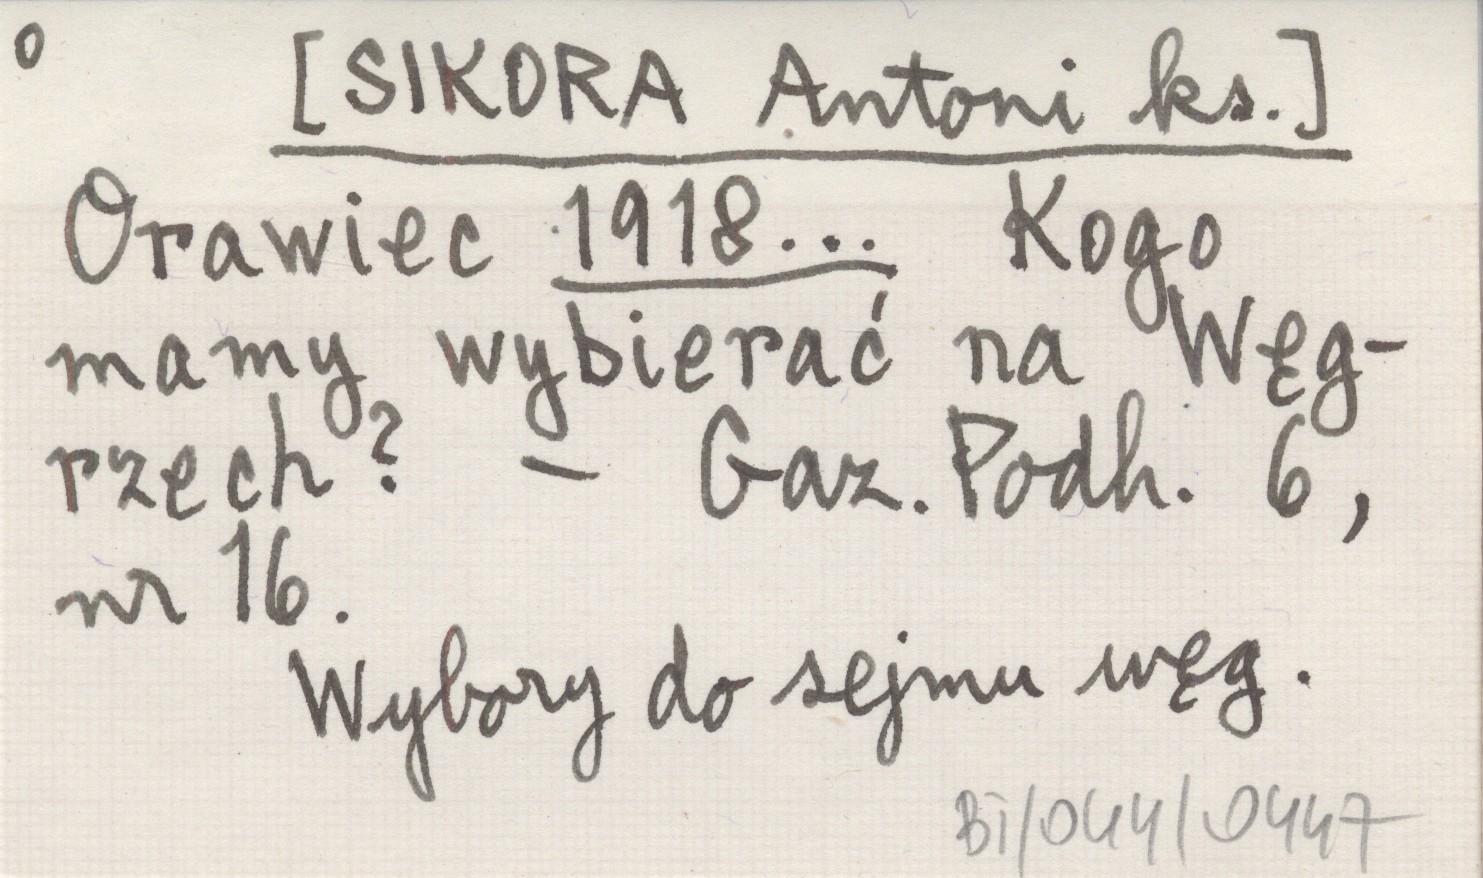 o
[SIKORA Antoni ks.]
Orawiec 1918... Kogo
mamy wybierać na Węg-
rzech? – Gaz. Podh. 6,
nr 16.
Wybory do sejmu węg.
BI/044/0447